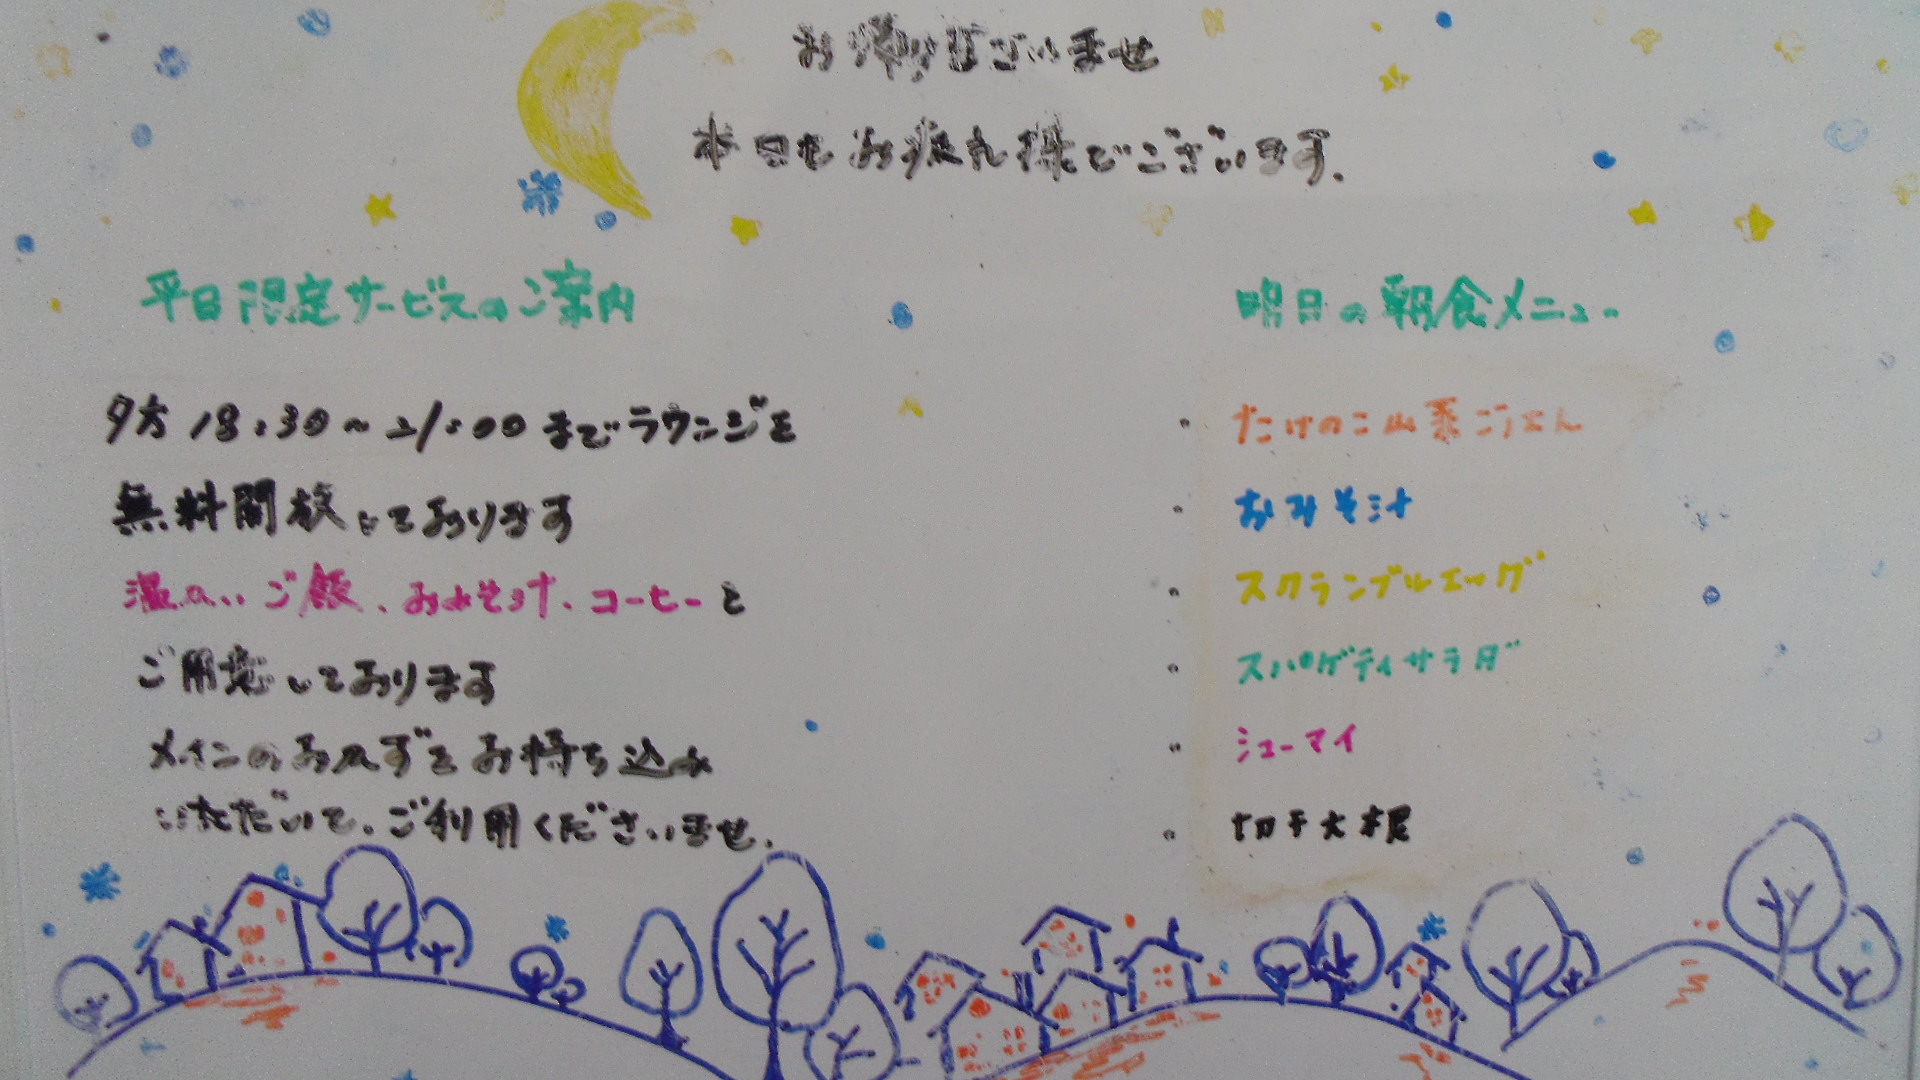 お帰りなさいませ
本日もお疲れ様でございます.
平日限定サービスのご案内
夕方 18:30~21:00 までラウンジを
無料開放しております
温かいご飯、おみそ汁、コーヒーを
ご用意しております
メインのおかずをお持ち込み
いただいて、ご利用くださいませ.
明日の朝食メニュー
・たけのこ山菜ごはん
・おみそ汁
・スクランブルエッグ
・スパゲティサラダ
・シューマイ
・切干大根